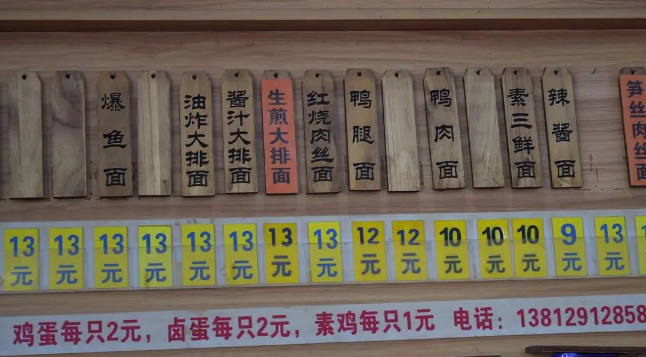 爆鱼面
油炸大排面
酱汁大排面
生煎大排面
红烧肉丝面
鸭腿面
鸭肉面
素三鲜面
辣酱面
笋丝肉丝面
13元
13元
13元
13元
13元
13元
13元
13元
12元
12元
10元
10元
10元
9元
13元
鸡蛋每只2元，卤蛋每只2元，素鸡每只1元 电话：13812912858